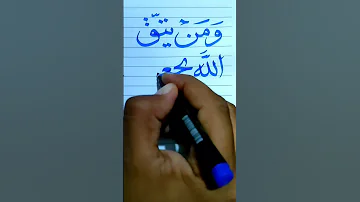 وَمَنْ يَتَّقِ
اللَّهَ يجعـ